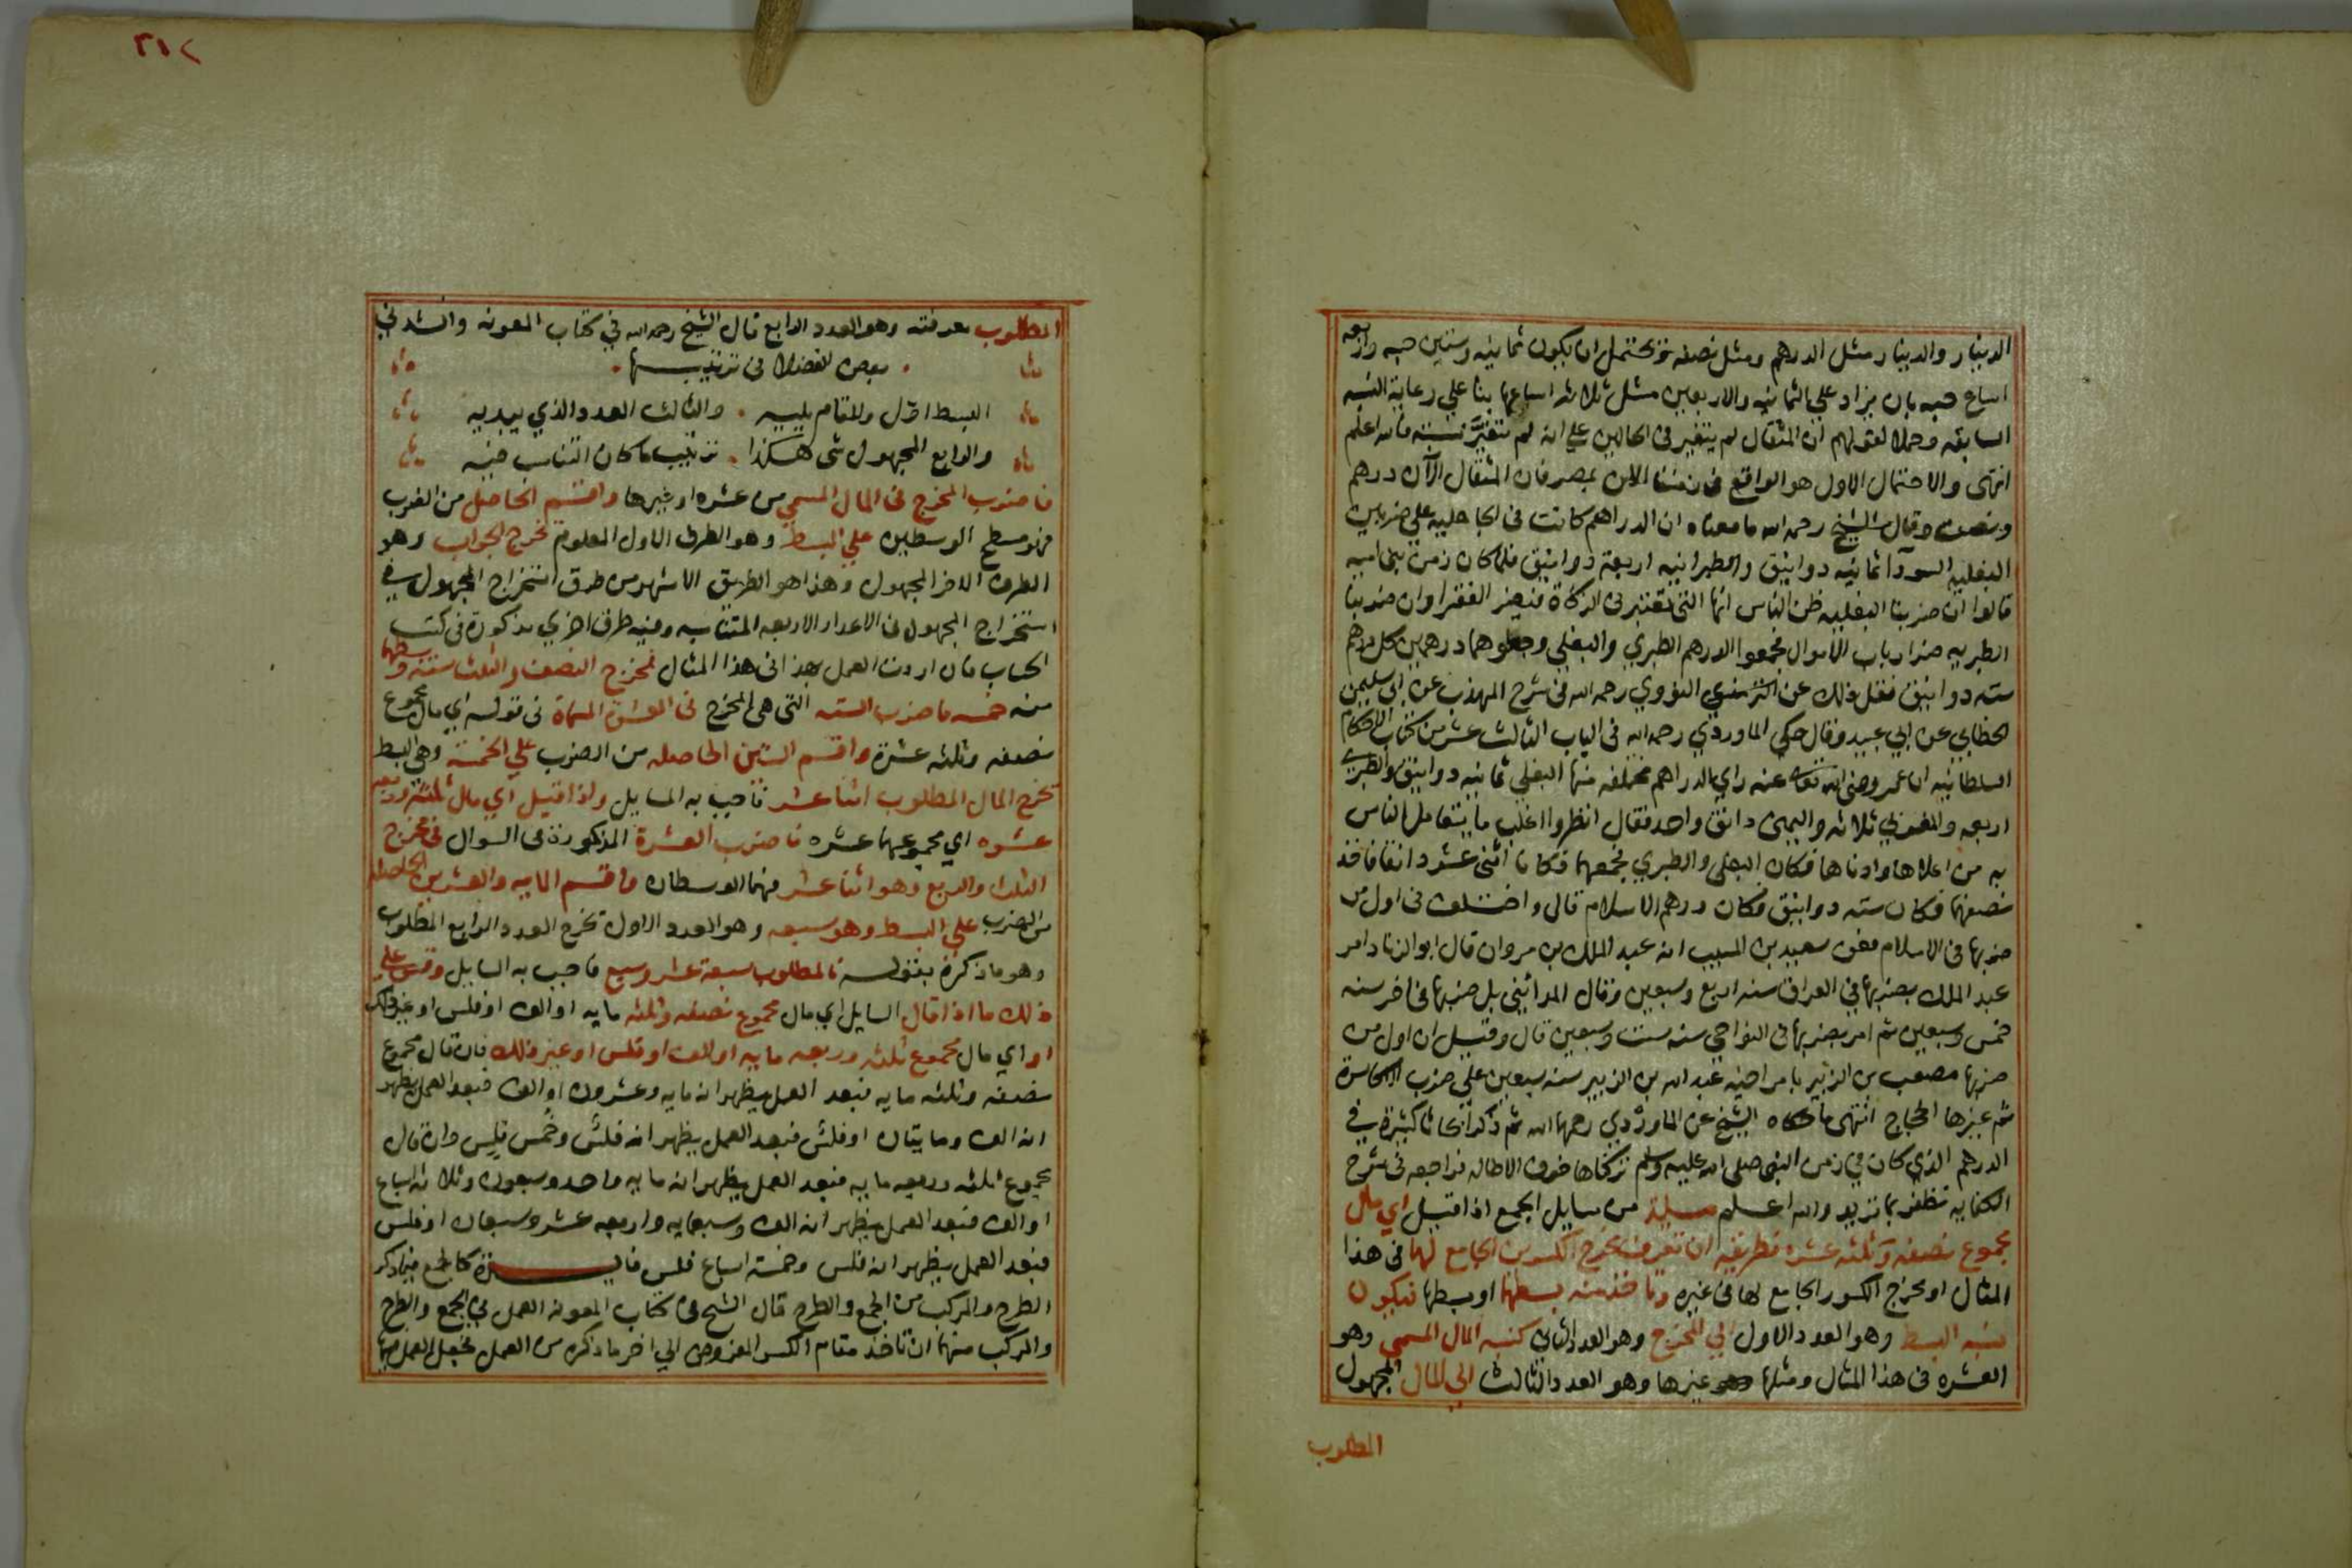 الدينار والدينار مثل الدرهم ومثل نصفه ويحتمل ان يكون ثمانيه وستين حبه واربعة
اسباع حبه بان يزاد علي الثمانيه والاربعين مثل ثلاثة اسباعها بنا علي رعاية النسبه
السابقه وحملا لقولهم ان المثقال لم يتغير في الحالين علي انه لم تتغير نسبته فالله اعلم
انتهى والاحتمال الاول هو الواقع في زمننا الان بمصر فان المثقال الآن درهم
ونصف وقال الشيخ رحمه الله ما معناه ان الدراهم كانت في الجاهليه علي ضربين
البغليه السودآ ثمانيه دوانيق والطبرانيه اربعة دوانيق فلما كان زمن بني اميه
قالوا ان ضربنا البغليه ظن الناس انها التي تعتبر في الزكاة فيضر الفقرا وان ضربنا
الطبريه ضر ارباب الاموال فجمعوا الدرهم الطبري والبغلي وجعلوهما درهمين كل درهم
سته دوانيق فنقل ذلك عن النووي رحمه الله في شرح المهذب عن ابي سليمن
الخطابي عن ابي عبيد وقال حكي الماوردي رحمه الله في الباب الثالث عشر من كتاب الاحكام
السلطانيه ان عمر رضى الله تعالى عنه راي الدراهم مختلفه منها البغلي ثمانيه دوانيق والطبري
اربعه والمغربي ثلاثه واليمني دانق واحد فقال انظروا اغلب ما يتعامل الناس
به من اعلاها وادناها فكان البغلي والطبري فجمعهما فكانا اثنى عشر دانقا فاخذ
نصفهما فكان سته دوانيق فكان درهم الاسلام قال واختلف في اول من
ضربها في الاسلام فعن سعيد بن المسيب انه عبد الملك بن مروان قال ابو الزناد امر
عبد الملك بضربها في العراق سنه اربع وسبعين وقال المدائني بل ضربها في اخر سنه
خمس وسبعين ثم امر بضربها في النواحي سنه ست وسبعين قال وقيل ان اول من
ضربها مصعب بن الزبير بامر اخيه عبد الله بن الزبير سنه سبعين علي ضرب الاكاسرة
ثم غيرها الحجاج انتهى ما حكاه الشيخ عن الماوردي رحمهما الله ثم ذكر ابحاثا كثيرة في
الدرهم الذي كان في زمن النبي صلى الله عليه وسلم تركناها خوف الاطاله فراجعه في شرح
الكفايه تظفر بما تريد والله اعلم مسيلة من مسايل الجمع اذا قيل اي مال
مجموع نصفه وثلثه عشره فطريقه ان تعرف مخرج الكسرين الجامع لهما في هذا
المثال او مخرج الكسور الجامع لها في غيره وتاخذ منه بسطهما او بسطها فيكون
نسبه البسط وهو العدد الاول الي المخرج وهو العدد الثاني كنسبه المال المسمى وهو
العشره في هذا المثال ومثلها غيرها وهو العدد الثالث الي المال المجهول
المطلوب
٣١٢
المطلوب معرفته وهو العدد الرابع قال الشيخ رحمه الله في كتاب المعونه وانشدني
بعض الفضلا في ترتيبها
البسط اوّل والمقام يليه . والثالث العدد الذي يبديه
والرابع المجهول شى هكذا . ترتيب ما كان التناسب فيه
فاضرب المخرج في المال المسمي من عشره او غيرها واقسم الحاصل من الضرب
فهو مسطح الوسطين علي البسط وهو الطرف الاول المعلوم يخرج الجواب وهو
الطرف الاخر المجهول وهذا هو الطريق الاشهر من طرق استخراج المجهول في
استخراج المجهول في الاعداد الاربعه المتناسبه وفيه طرق اخري مذكورة في كتب
الحساب فان اردت العمل بهذا في هذا المثال فمخرج النصف والثلث سته وبسطهما
منه خمسه فاضرب السته التي هي المخرج في العشرة المسماة في قوله اي مال مجموع
نصفه وثلثه عشرة واقسم الستين الحاصله من الضرب علي الخمسة وهي البسط
يخرج المال المطلوب اثنا عشر فاجب به السايل ولذا قيل اي مال ثلثه وربعه
عشره اي مجموعهما عشره فاضرب العشرة المذكورة في السوال في مخرج
الثلث والربع وهو اثنا عشر فهما الوسطان واقسم المايه والعشرين الحاصله
من الضرب علي البسط وهو سبعه وهو العدد الاول يخرج العدد الرابع المطلوب
وهو ما ذكره بقوله فالمطلوب سبعة عشر وسبع فاجب به السايل وقس علي
ذلك ما اذا قال السايل اي مال مجموع نصفه وثلثه مايه او الف او فلس او غير ذلك
او اي مال مجموع ثلثه وربعه مايه او الف او فلس او غير ذلك فان قال مجموع
نصفه وثلثه مايه فبعد العمل يظهر انه مايه وعشرون او الف فبعد العمل يظهر
انه الف ومايتان او فلس فبعد العمل يظهر انه فلس وخمس فلس وان قال
مجموع ثلثه وربعه مايه فبعد العمل يظهر انه مايه واحد وسبعون وثلاثة اسباع
او الف فبعد العمل يظهر انه الف وسبعمايه واربعه عشر وسبعان او فلس
فبعد العمل يظهر انه فلس وخمسة اسباع فلس فايدة كالجمع فيما ذكر
الطرح والمركب من الجمع والطرح قال الشيخ في كتاب المعونه العمل في الجمع والطرح
والمركب منهما ان تاخذ مقام الكسر المفروض الي اخر ما ذكره من العمل فجعل العمل فيها